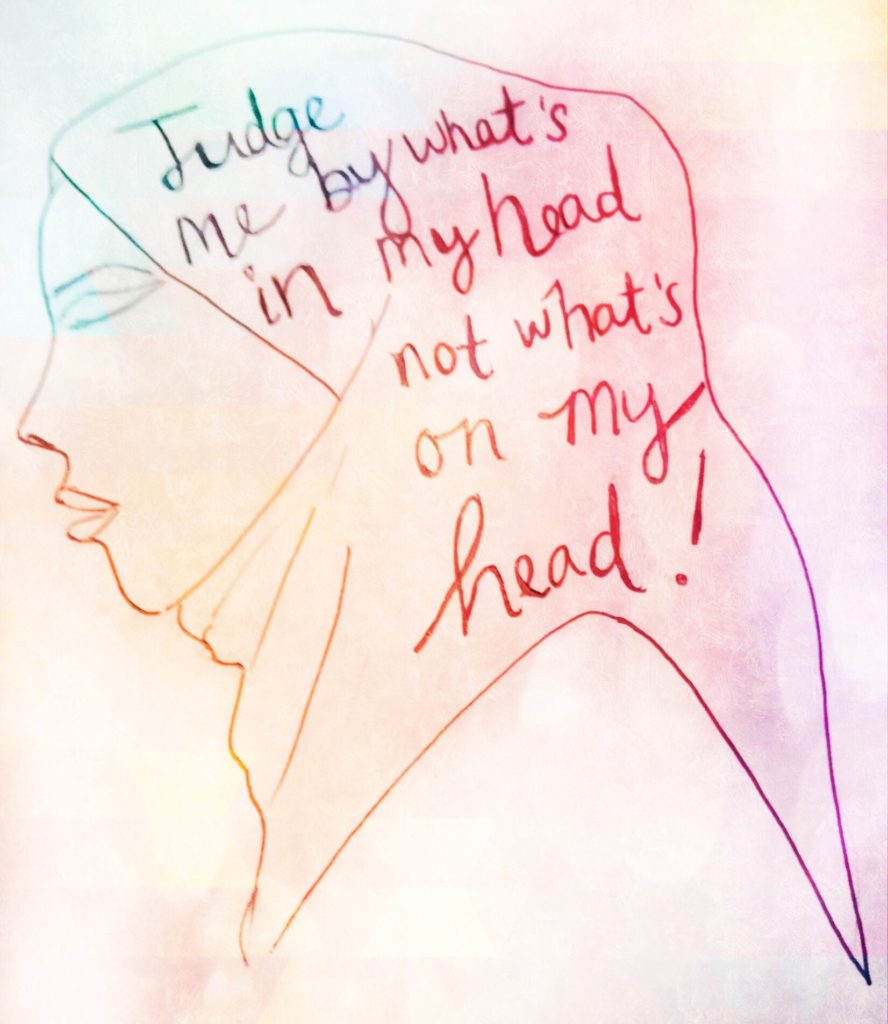 Judge
me by what's
in my head
not what's
on my
head!